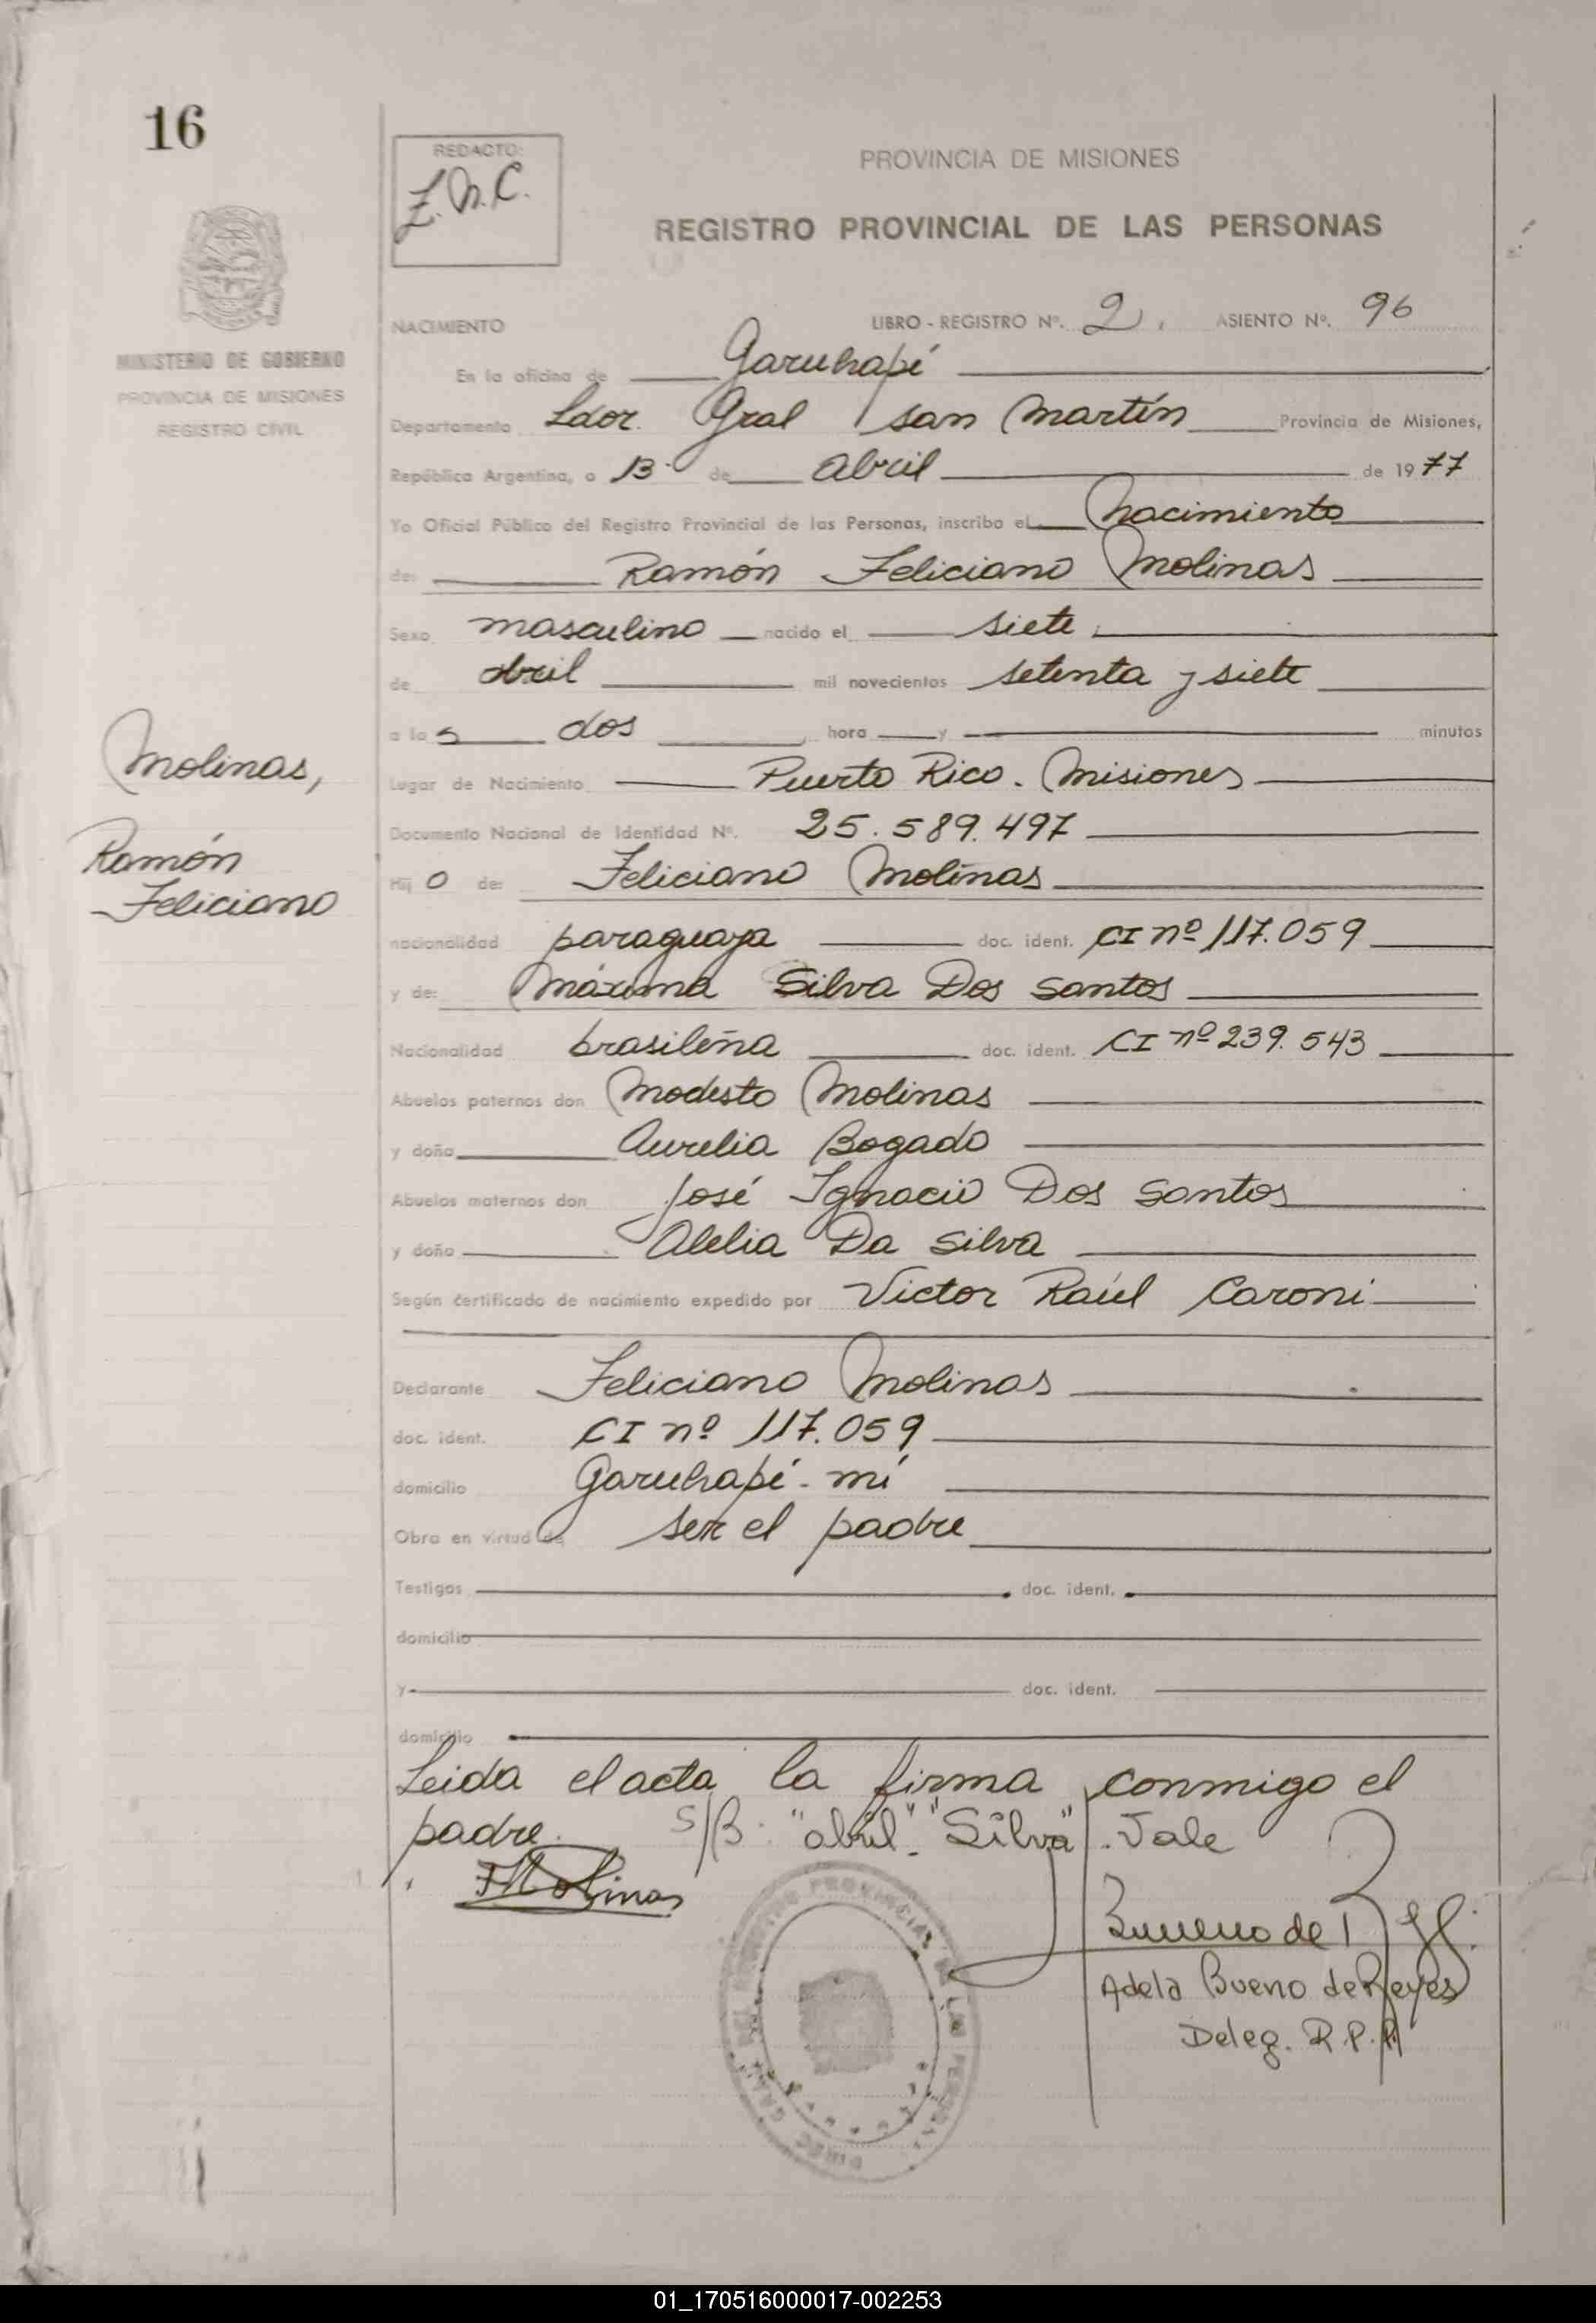 16
REDACTO:
Z.M.C.
PROVINCIA DE MISIONES
REGISTRO PROVINCIAL DE LAS PERSONAS
MINISTERIO DE GOBIERNO
PROVINCIA DE MISIONES
REGISTRO CIVIL
NACIMIENTO LIBRO - REGISTRO Nº. 2. ASIENTO Nº. 96
En la oficina de Garuhapé
Departamento Ldor. Gral San Martín Provincia de Misiones,
República Argentina, a 13 de abril de 1977
Yo Oficial Público del Registro Provincial de las Personas, inscribo el nacimiento
de: Ramón Feliciano Molinas
Sexo masculino nacido el siete
de abril mil novecientos setenta y siete
a las dos hora y minutos
Lugar de Nacimiento Puerto Rico. Misiones
Documento Nacional de Identidad Nº. 25.589.497
Molinas,
Ramón
Feliciano
Hij o de: Feliciano Molinas
nacionalidad paraguaya doc. ident. CI nº 117.059
y de: Máxima Silva Dos Santos
Nacionalidad brasileña doc. ident. CI nº 239.543
Abuelos paternos don Modesto Molinas
y doña Aurelia Bogado
Abuelos maternos don José Ignacio Dos Santos
y doña Alelia Da Silva
Según certificado de nacimiento expedido por Victor Raúl Caroni
Declarante Feliciano Molinas
doc. ident. CI nº 117.059
domicilio Garuhapé-mí
Obra en virtud de ser el padre
Testigos doc. ident.
domicilio
y doc. ident.
domicilio
Leida el acta la firma conmigo el
padre. S/B: "abril" - "Silva". Vale
FMolinas
Bueno de R
Adela Bueno de Reyes
Deleg. R.P.P.
DIREC. GRAL. DEL REGISTRO PROVINCIAL DE LAS PERSONAS
01_170516000017-002253